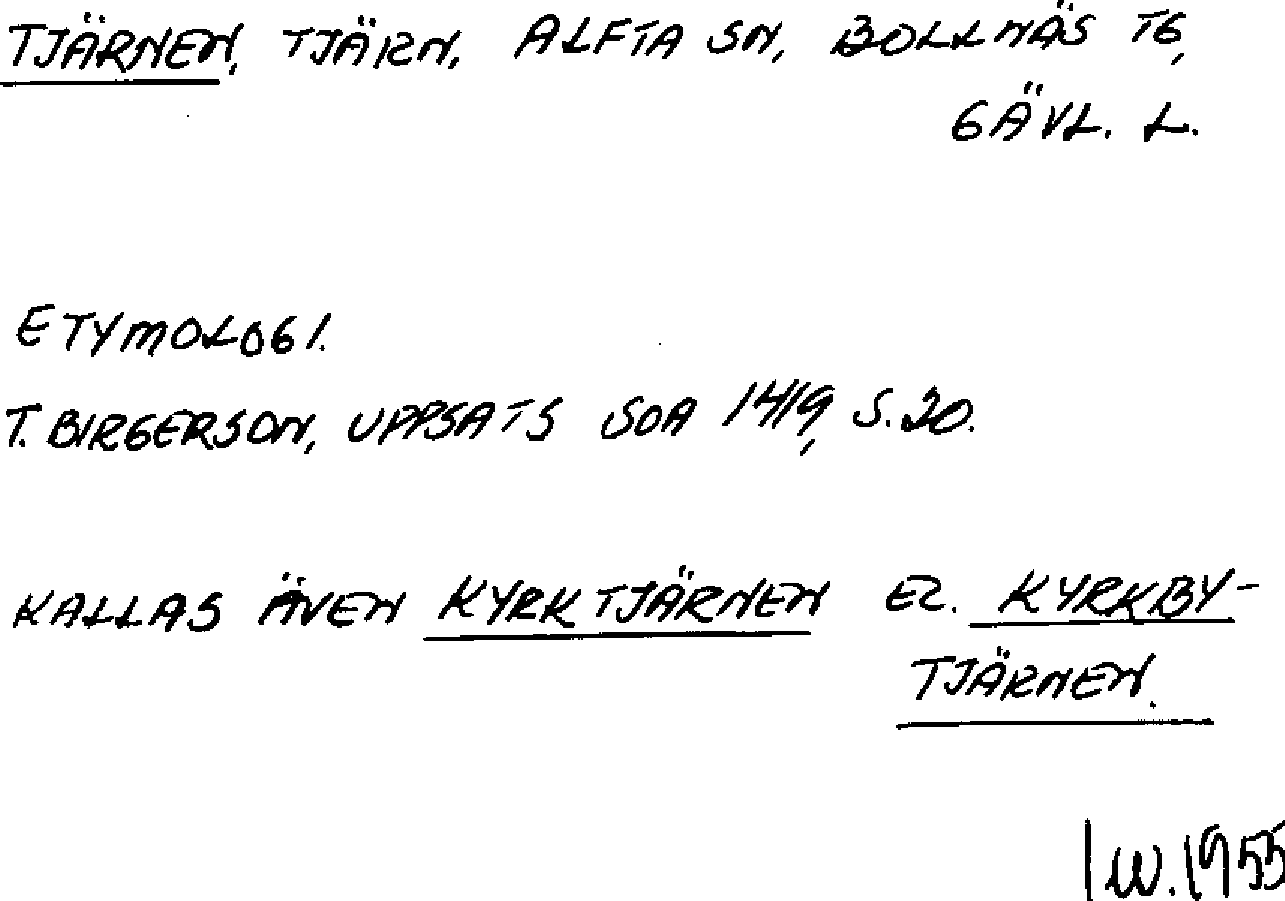 TJÄRNEN, TJÄRN, ALFTA SN, BOLLNÄS TG,
GÄVL. L.
ETYMOLOGI.
T. BIRGERSON, UPPSATS SOA 1419, S. 20.
KALLAS ÄVEN KYRKTJÄRNEN EL. KYRKBY-
TJÄRNEN.
IW. 1955